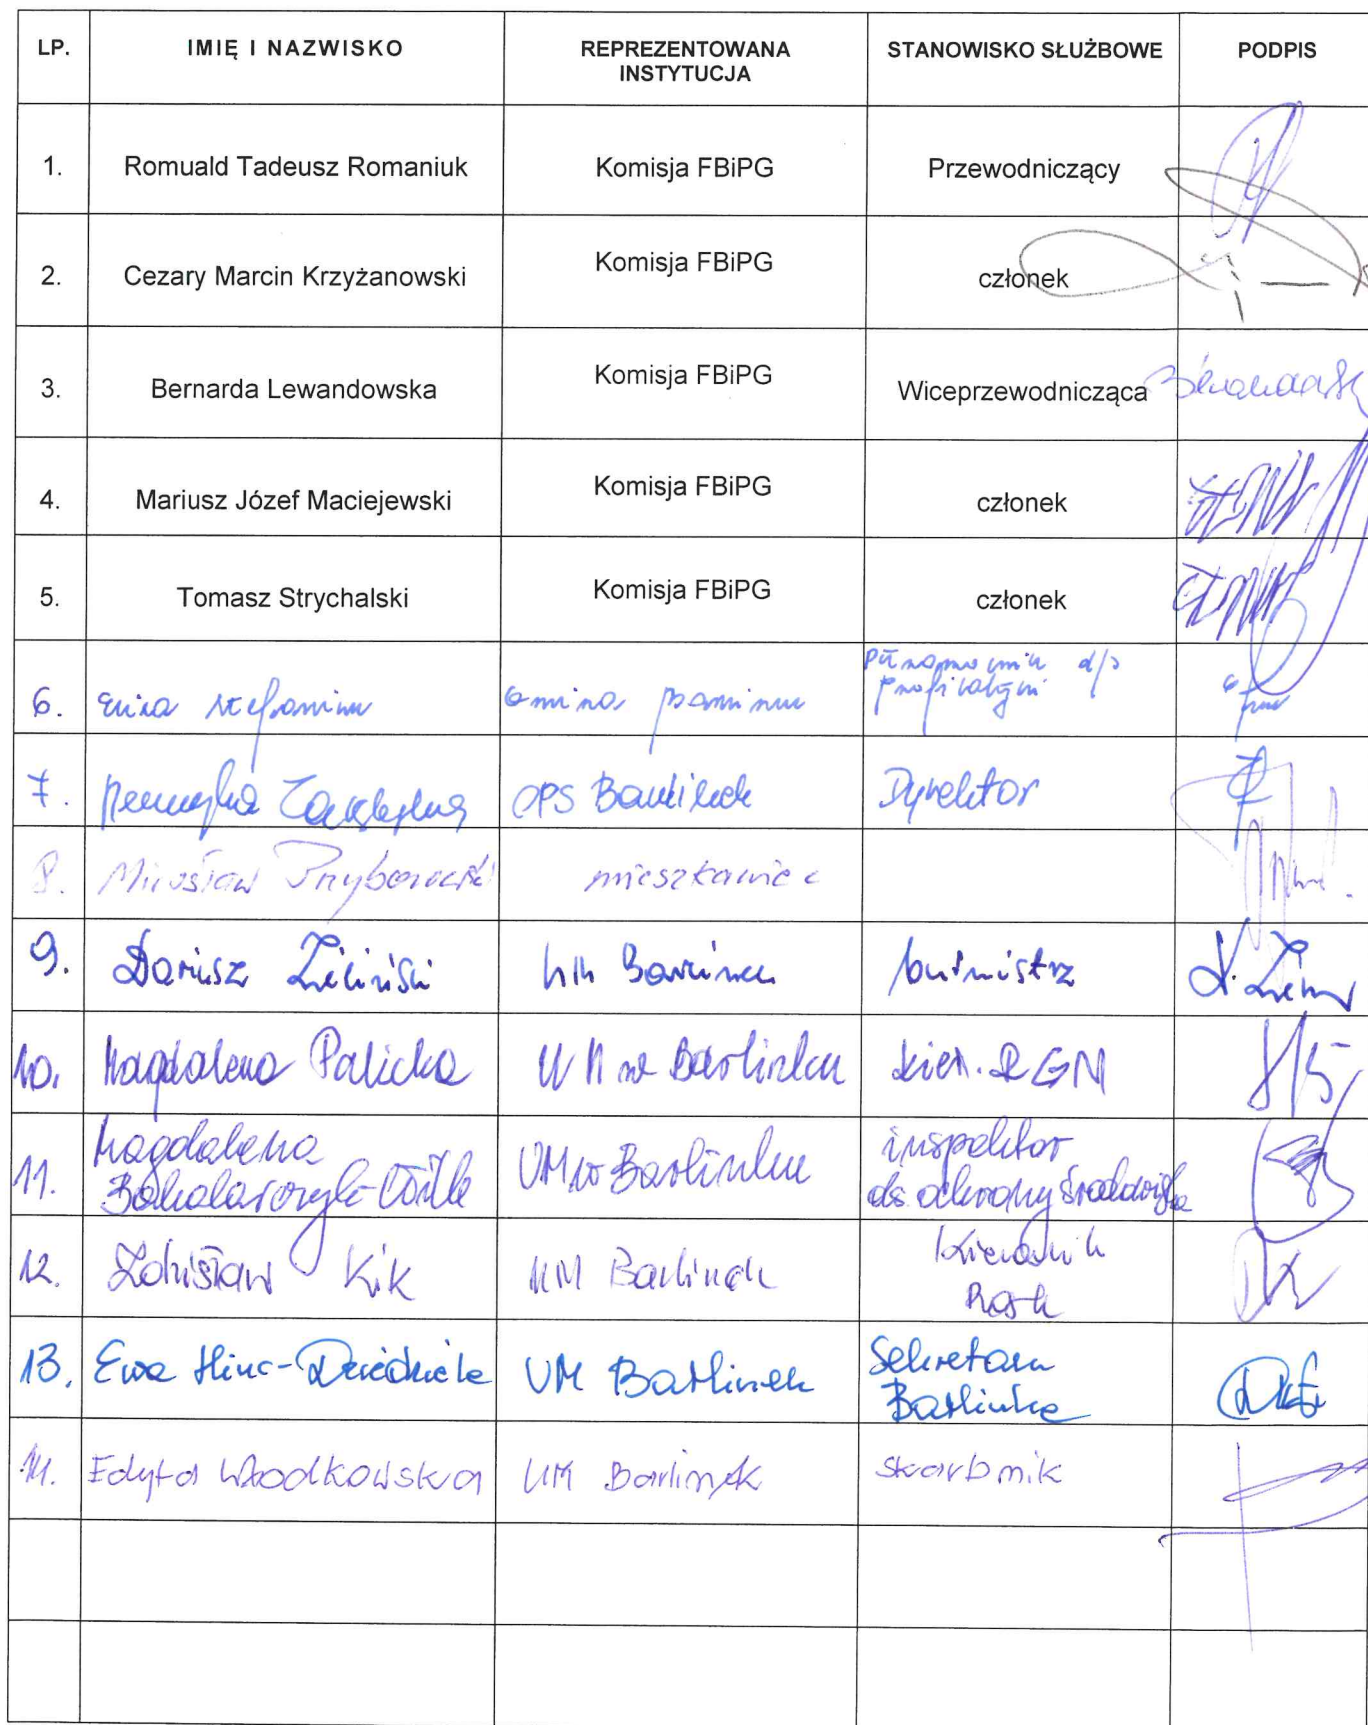 LP. IMIĘ I NAZWISKO REPREZENTOWANA INSTYTUCJA STANOWISKO SŁUŻBOWE PODPIS
1. Romuald Tadeusz Romaniuk Komisja FBiPG Przewodniczący
2. Cezary Marcin Krzyżanowski Komisja FBiPG członek
3. Bernarda Lewandowska Komisja FBiPG Wiceprzewodnicząca
4. Mariusz Józef Maciejewski Komisja FBiPG członek
5. Tomasz Strychalski Komisja FBiPG członek
6. Gmina
7. OPS Barlinek Dyrektor
8. Mirosław mieszkaniec
9. Dariusz Zieliński UM Barlinek burmistrz
10. Magdalena Palicka UM w Barlinku kier. RGN
11. Magdalena UM w Barlinku inspektor
ds ochrony środowiska
12. Zdzisław Kik UM Barlinek Kierownik
13. Ewa UM Barlinek Sekretarz
Barlinka
14. Edyta Włodkowska UM Barlinek skarbnik